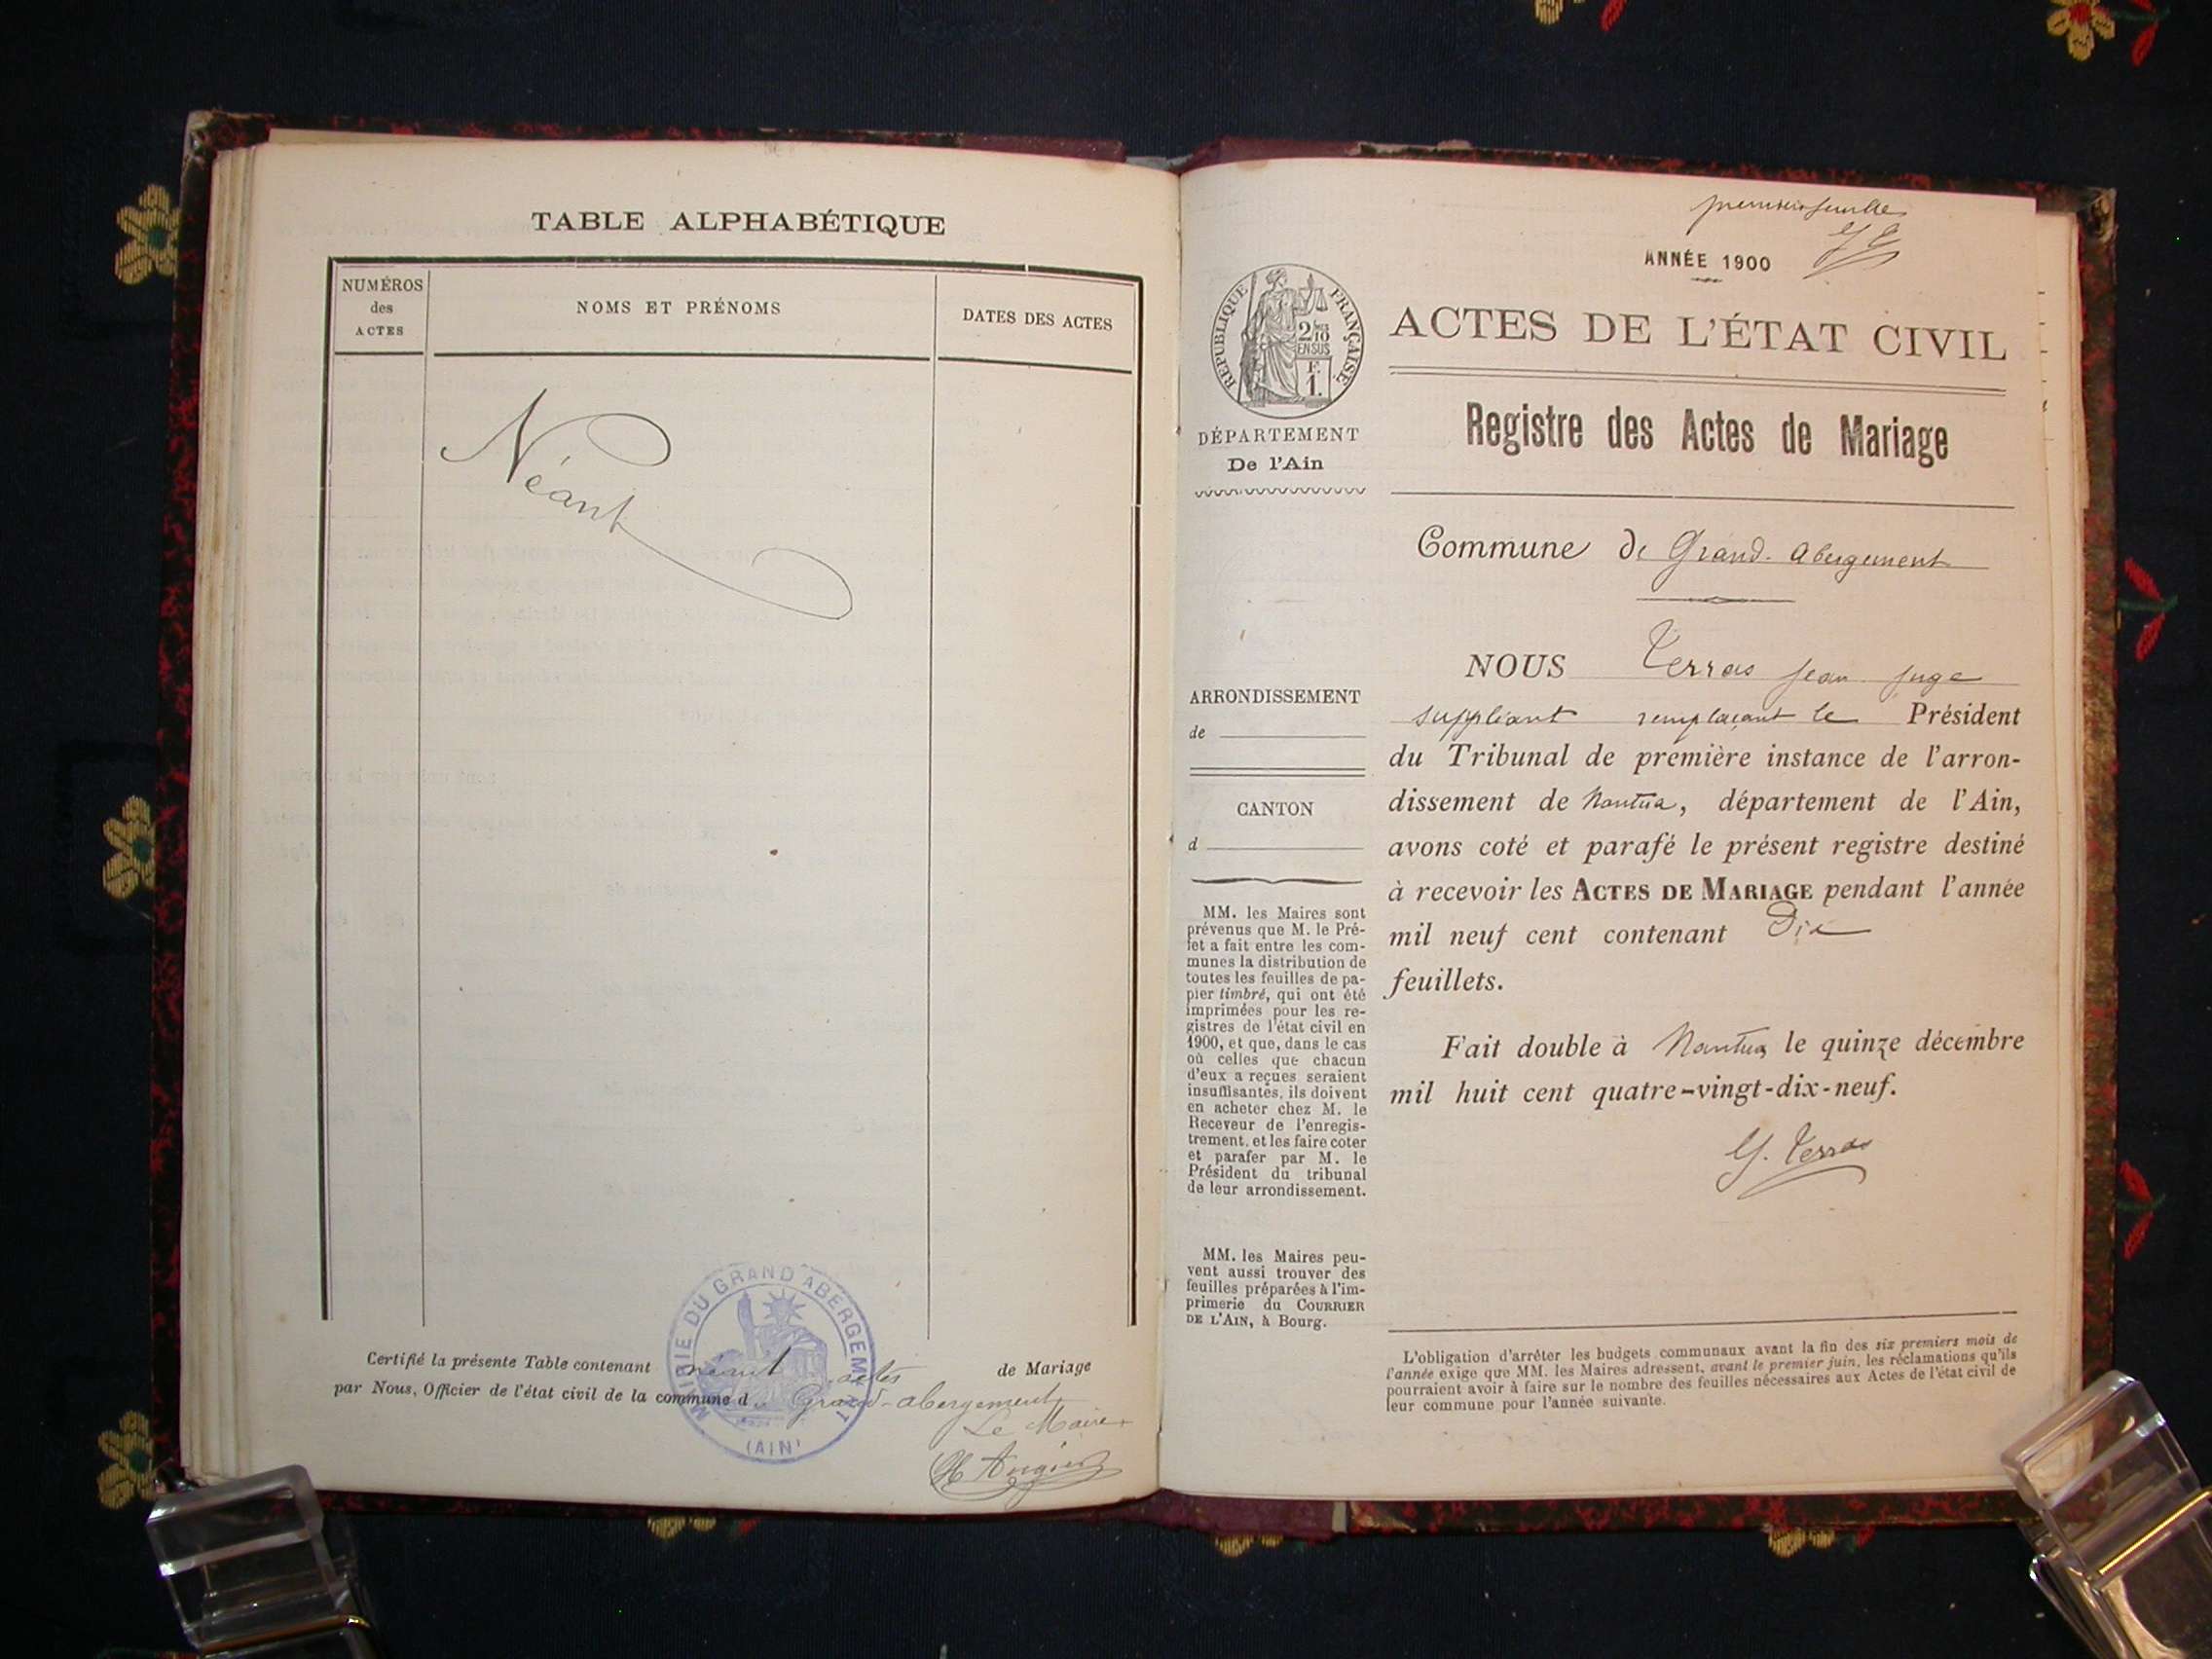 TABLE ALPHABÉTIQUE
NUMÉROS
des
ACTES
NOMS ET PRÉNOMS
DATES DES ACTES
Néant
MAIRIE DU GRAND ABERGEMENT
(AIN)
Certifié la présente Table contenant néant actes de Mariage
par Nous, Officier de l'état civil de la commune d Grand-abergement
Le Maire
ANNÉE 1900
RÉPUBLIQUE FRANÇAISE
2/10
EN SUS
F.
1.
DÉPARTEMENT
De l'Ain
ARRONDISSEMENT
de
CANTON
d
MM. les Maires sont
prévenus que M. le Pré-
fet a fait entre les com-
munes la distribution de
toutes les feuilles de pa-
pier timbré, qui ont été
imprimées pour les re-
gistres de l'état civil en
1900, et que, dans le cas
où celles que chacun
d'eux a reçues seraient
insuffisantes, ils doivent
en acheter chez M. le
Receveur de l'enregis-
trement, et les faire coter
et parafer par M. le
Président du tribunal
de leur arrondissement.
MM. les Maires peu-
vent aussi trouver des
feuilles préparées à l'im-
primerie du COURRIER
DE L'AIN, à Bourg.
ACTES DE L'ÉTAT CIVIL
Registre des Actes de Mariage
Commune de Grand-Abergement
NOUS Terras Jean juge
suppléant remplaçant le Président
du Tribunal de première instance de l'arron-
dissement de Nantua, département de l'Ain,
avons coté et parafé le présent registre destiné
à recevoir les ACTES DE MARIAGE pendant l'année
mil neuf cent contenant Dix
feuillets.
Fait double à Nantua le quinze décembre
mil huit cent quatre-vingt-dix-neuf.
J. Terras
L'obligation d'arrêter les budgets communaux avant la fin des six premiers mois de
l'année exige que MM. les Maires adressent, avant le premier juin, les réclamations qu'ils
pourraient avoir à faire sur le nombre des feuilles nécessaires aux Actes de l'état civil de
leur commune pour l'année suivante.